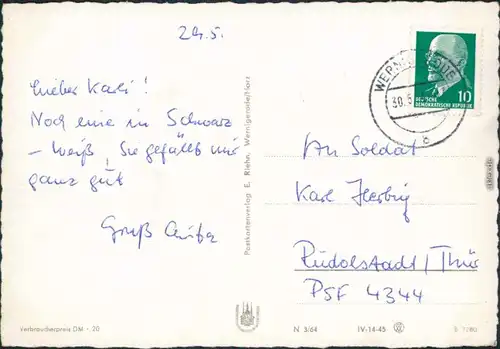 29.5.
Lieber Karl!
Noch eine in Schwarz
- Weiß, Sie gefällt mir
ganz gut
Gruß
Postkartenverlag E. Riehn, Wernigerode/Harz
10
DEUTSCHE
DEMOKRATISCHE REPUBLIK
WERNIGERODE
30.5
An Soldat
Karl Herbig
Rudolstadt/Thür
PSF 4344
Verbraucherpreis DM -.20
N 3/64 IV-14-45